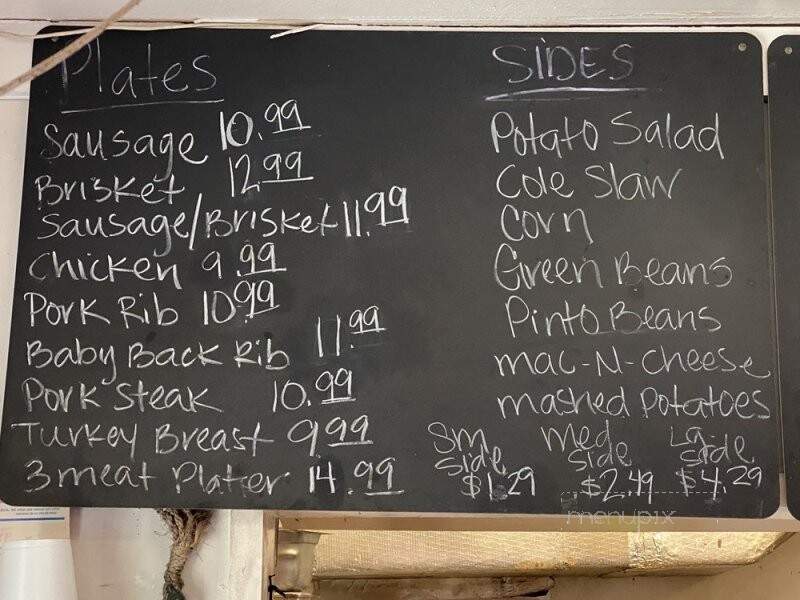 Plates
Sausage 10.99
Brisket 12.99
Sausage/Brisket 11.99
Chicken 9.99
Pork Rib 10.99
Baby Back Rib 11.99
Pork Steak 10.99
Turkey Breast 9.99
3 meat Plater 14.99
SIDES
Potato Salad
Cole Slaw
Corn
Green Beans
Pinto Beans
mac-N-cheese
mashed Potatoes
Sm side $1.29
Med side $2.49
Lg side $4.29
menupix